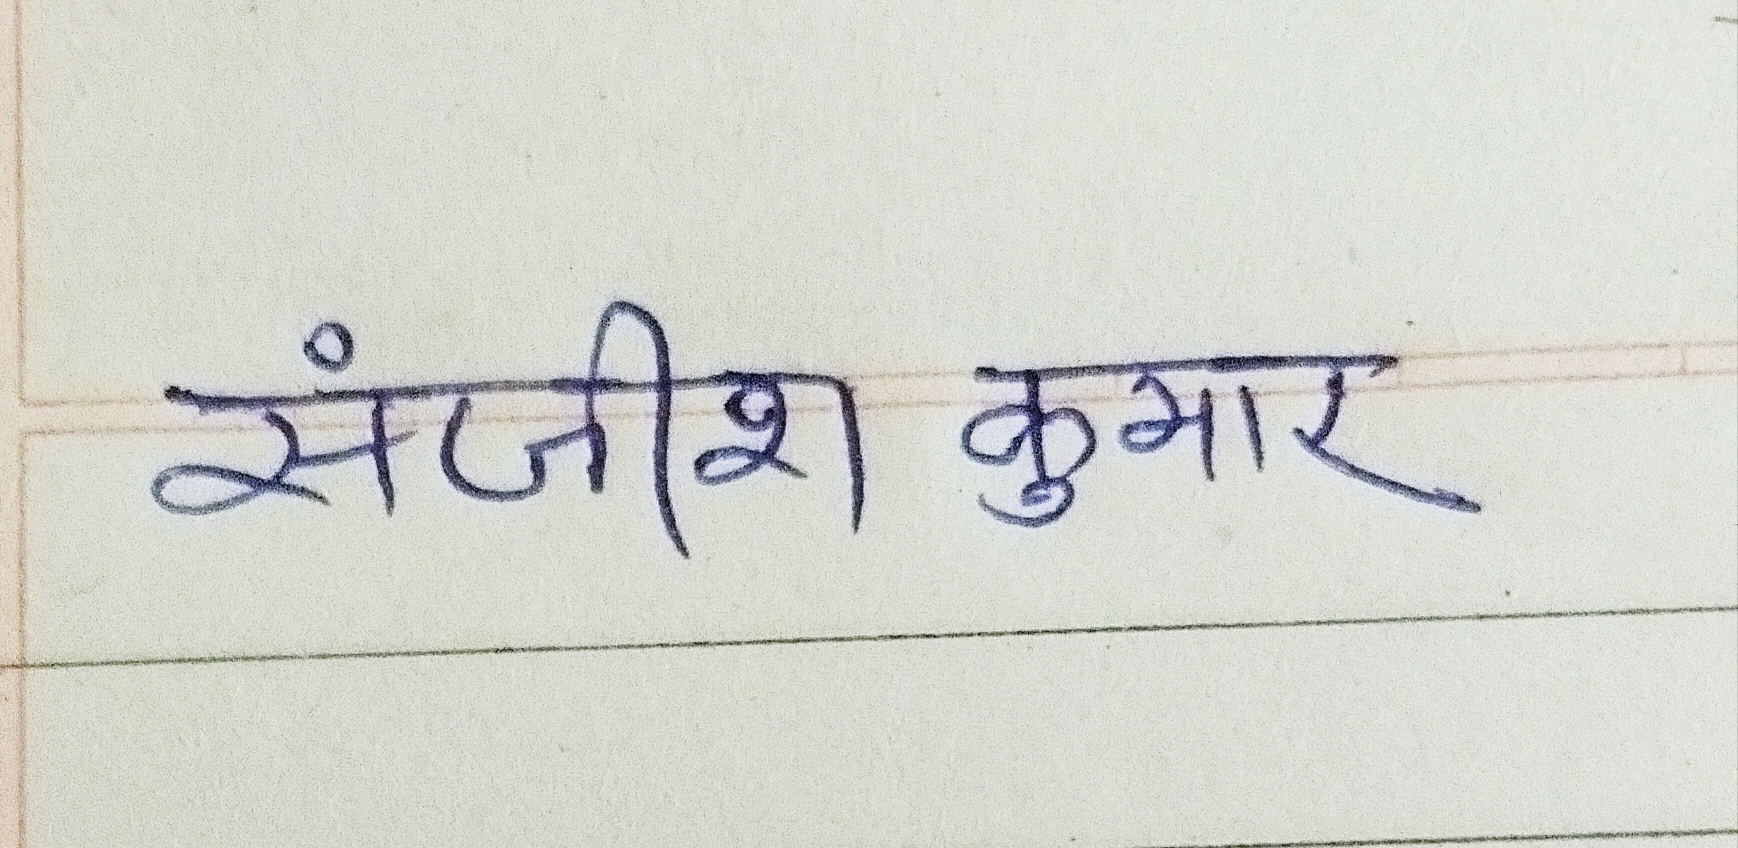 संजीश कुमार